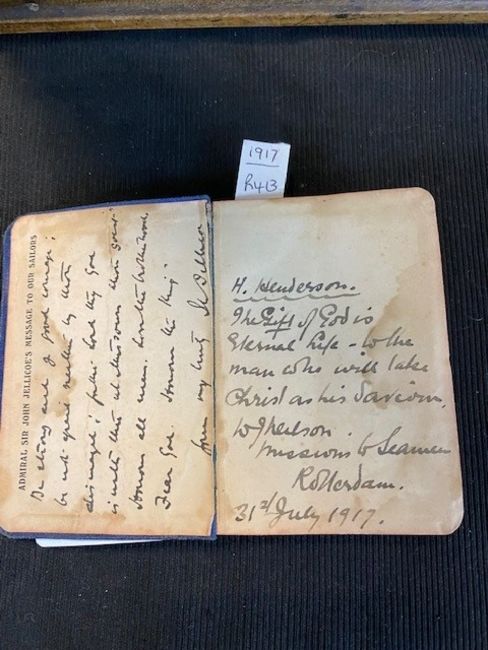 1917
R413
ADMIRAL SIR JOHN JELLICOE'S MESSAGE TO OUR SAILORS
Be strong and of good courage;
be not afraid neither be thou
dismayed; for the Lord thy God
is with thee whithersoever thou goest.
Honour all men. Love the brotherhood.
Fear God. Honour the King.
J R Jellicoe
H. Henderson.
The Gift of God is
Eternal Life - to the
man who will take
Christ as his Saviour.
Missions to Seamen
Rotterdam.
31st July 1917.